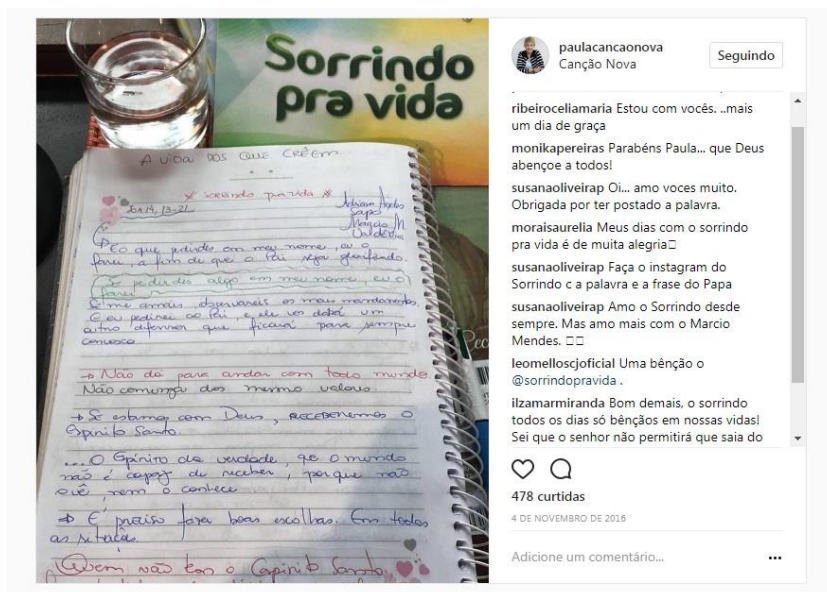 Sorrindo
pra vida
A vida dos que crêem.
* sorrindo pra vida *
Jo 14, 13-21
Márcio M.
→ O que pedirdes em meu nome, eu o
farei, a fim de que o Pai seja glorificado.
Se pedirdes algo em meu nome, eu o
farei ~
Se me amais, observareis os meus mandamentos.
E eu pedirei ao Pai, e ele vos dará um
outro defensor que ficará para sempre
convosco.
→ Não dá para andar com todo mundo.
Não comunga dos mesmo valores.
→ Se estamos com Deus, receberemos o
Espírito Santo.
... O Espírito da verdade, qe o mundo
não é capaz de receber, porque não
o vê, nem o conhece
→ É preciso fazer boas escolhas. Em todas
as
Quem não tem o Espírito Santo,
paulacancaonova
Canção Nova
Seguindo
ribeiroceliamaria Estou com vocês. ..mais
um dia de graça
monikapereiras Parabéns Paula... que Deus
abençoe a todos!
susanaoliveirap Oi... amo voces muito.
Obrigada por ter postado a palavra.
moraisaurelia Meus dias com o sorrindo
pra vida é de muita alegria
susanaoliveirap Faça o instagram do
Sorrindo c a palavra e a frase do Papa
susanaoliveirap Amo o Sorrindo desde
sempre. Mas amo mais com o Marcio
Mendes.
leomelloscjoficial Uma bênção o
@sorrindopravida .
ilzamarmiranda Bom demais, o sorrindo
todos os dias só bênçãos em nossas vidas!
Sei que o senhor não permitirá que saia do
478 curtidas
4 DE NOVEMBRO DE 2016
Adicione um comentário...